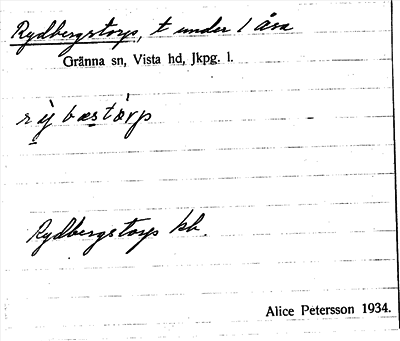 Rydbergstorp, t under 1 Åsa
Gränna sn, Vista hd, Jkpg. l.
rỳbæstórp
Rydbergstorp kb.
Alice Petersson 1934.